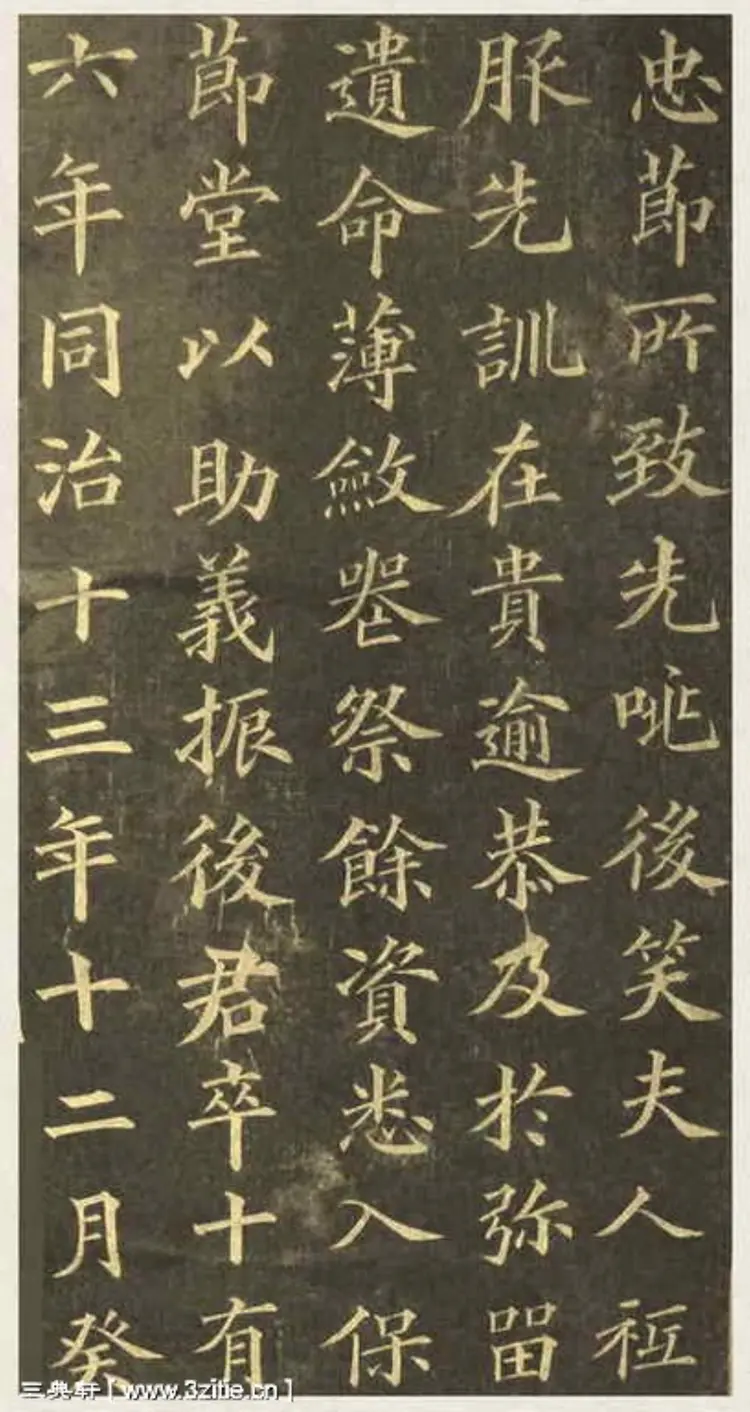 忠節所致先咷後笑夫人祗
服先訓在貴逾恭及於弥留
遺命薄斂喪祭餘資悉入保
節堂以助義振後君卒十有
六年同治十三年十二月癸
三典轩[www.3zitie.cn]